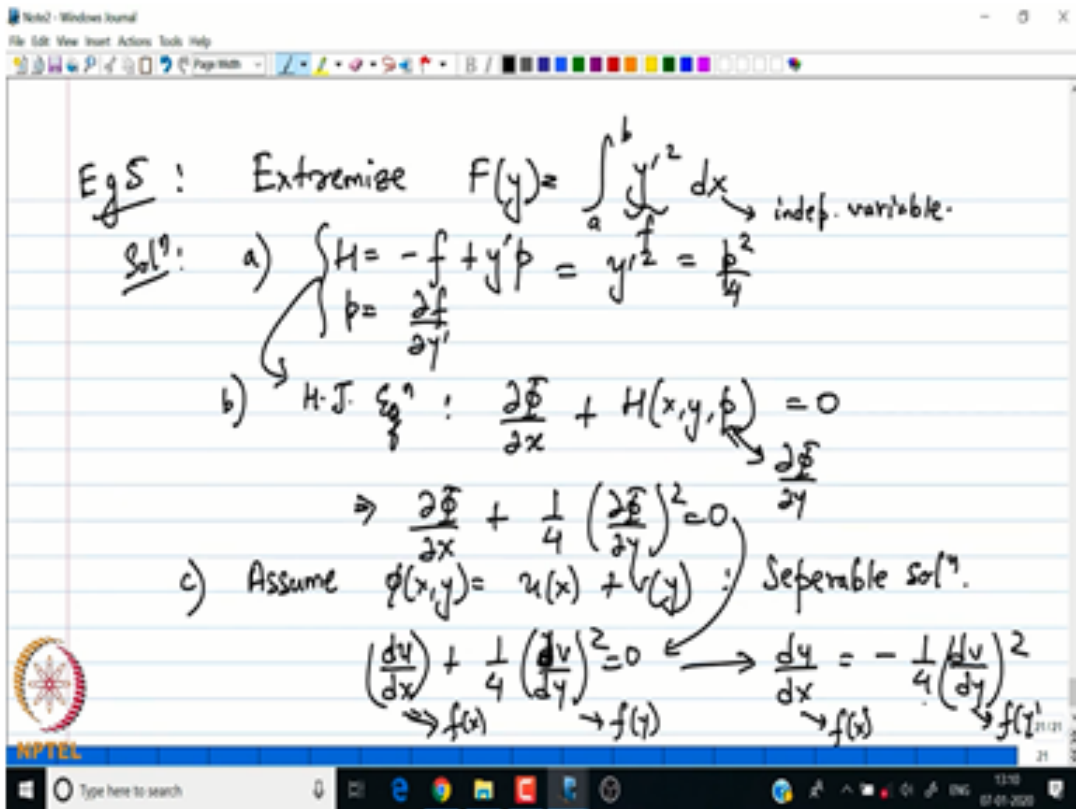 Note2 - Windows Journal
File Edit View Insert Actions Tools Help
Page Width
Eg 5 : Extremize F(y) = ∫_a^b y'^2 dx → indep. variable.
f
Solⁿ: a) { H = -f + y'p = y'^2 = p^2/4
p = ∂f/∂y'
b) H-J. Eqⁿ : ∂Φ/∂x + H(x,y,p) = 0
∂Φ/∂y
⇒ ∂Φ/∂x + 1/4 (∂Φ/∂y)^2 = 0
c) Assume ϕ(x,y) = u(x) + v(y) : Seperable solⁿ.
(du/dx) + 1/4 (dv/dy)^2 = 0 → du/dx = - 1/4 (dv/dy)^2
→ f(x) → f(y) → f(x) → f(y)
21/21
21
NPTEL
Type here to search
ENG
13:10
07-01-2020